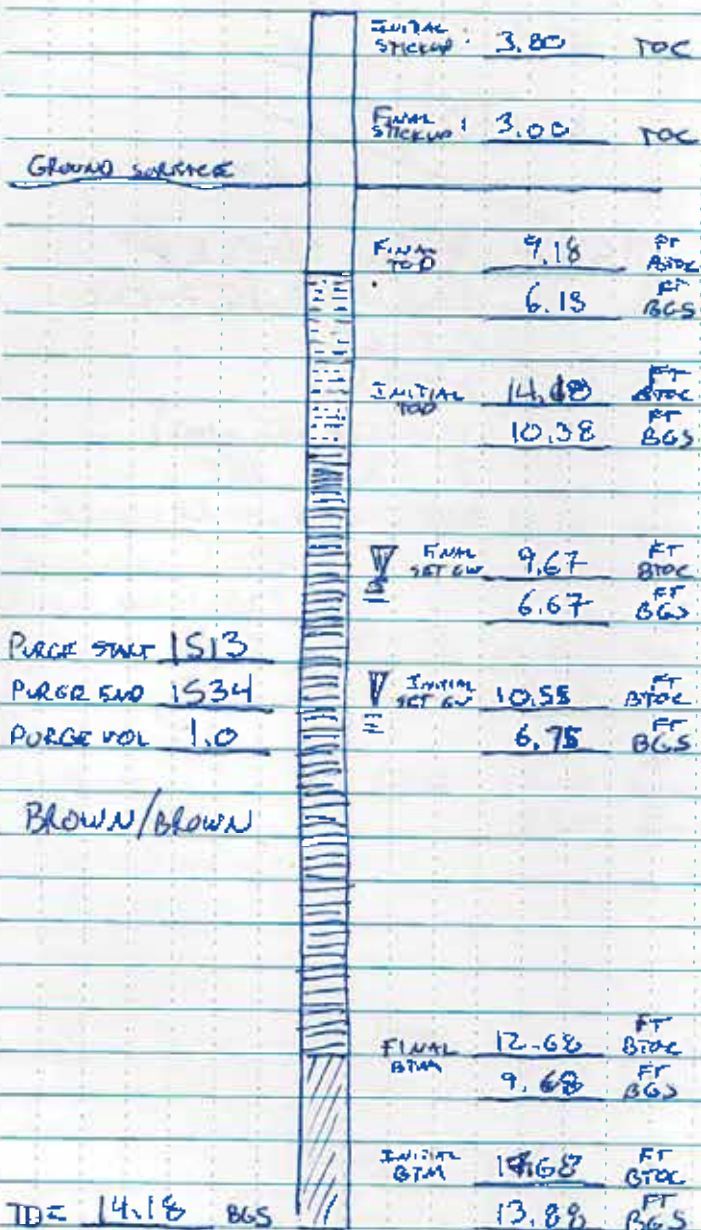 INITIAL STICKUP : 3.80 TOC
FINAL STICKUP : 3.00 TOC
GROUND SURFACE
FINAL TOD 9.18 FT BTOC
6.18 FT BGS
INITIAL TOD FT BTOC
10.38 FT BGS
FINAL SET GW 9.67 FT BTOC
6.67 FT BGS
PURGE START 1513
PURGE END 1534
INITIAL SET GW 10.55 FT BTOC
PURGE VOL 1.0
6.75 FT BGS
BROWN/BROWN
FINAL BTM 12.68 FT BTOC
9.68 FT BGS
INITIAL BTM FT BTOC
TD = 14.18 BGS
13.88 FT BGS